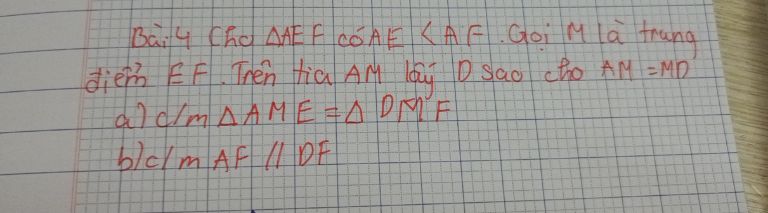 Bài 4 Cho ΔAEF có AE < AF. Gọi M là trung
điểm EF. Trên tia AM lấy D sao cho AM = MD
a) c/m Δ AME = Δ DMF
b) c/m AF // DF